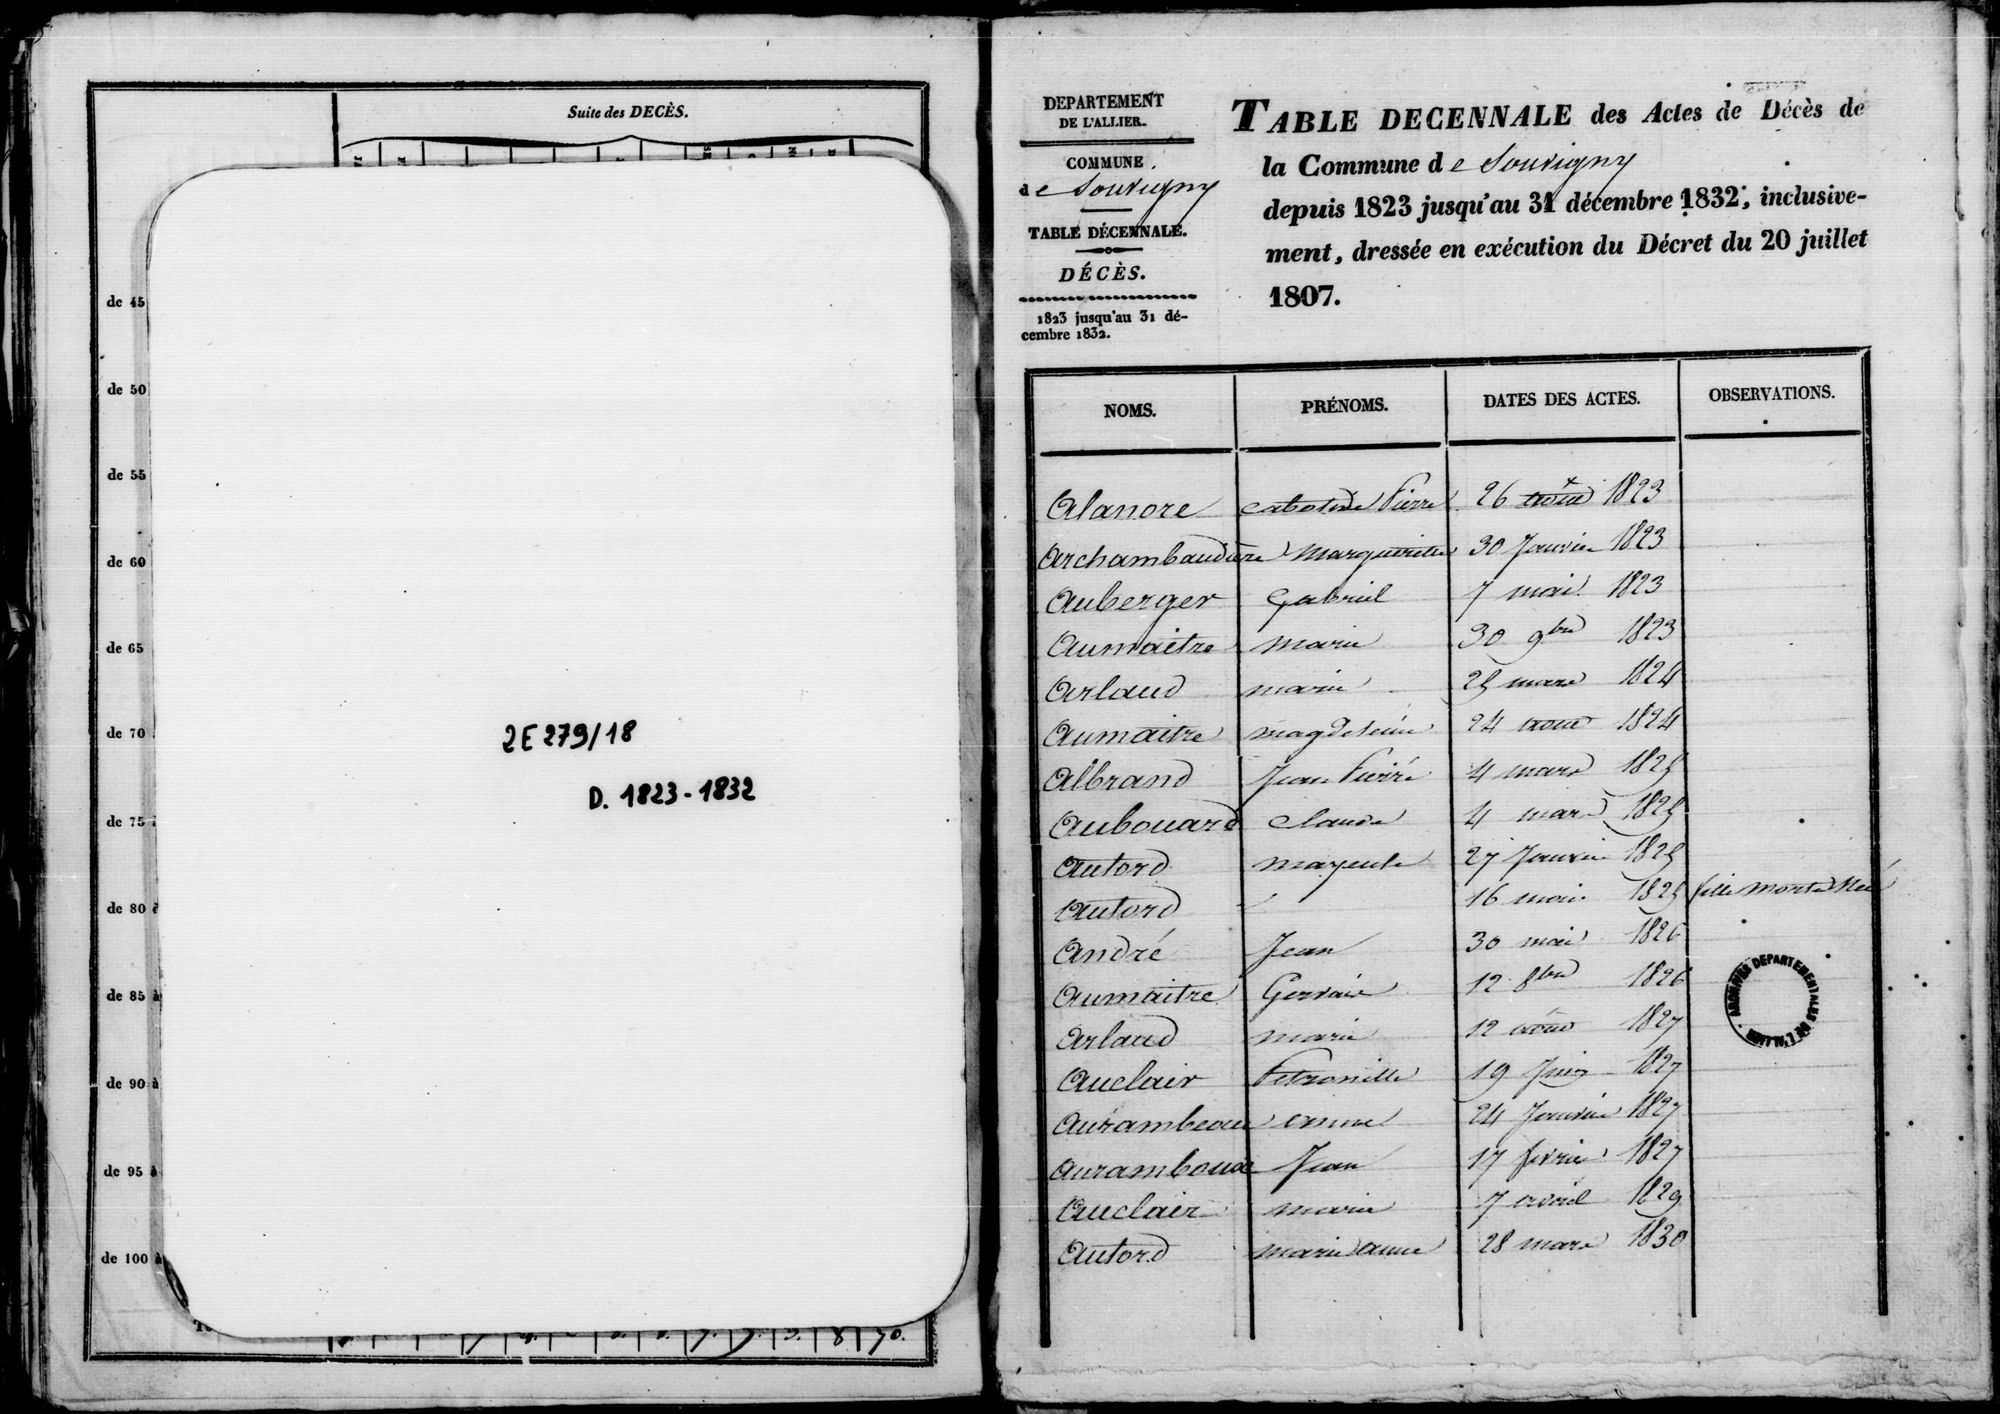 Suite des DECÈS.
de 45
de 50
de 55
de 60
de 65
de 70
de 75
de 80
de 85 à
de 90 à
de 95 à
de 100 à
2E 279/18
D. 1823-1832
DEPARTEMENT
DE L'ALLIER.
COMMUNE
de Souvigny
TABLE DÉCENNALE.
DÉCÈS.
1823 jusqu'au 31 dé-
cembre 1832.
TABLE DECENNALE des Actes de Décès de
la Commune de Souvigny
depuis 1823 jusqu'au 31 décembre 1832, inclusive-
ment, dressée en exécution du Décret du 20 juillet
1807.
NOMS. PRÉNOMS. DATES DES ACTES. OBSERVATIONS.
Alanore Pierre 26 août 1823
Archambaudière Marguerite 30 Janvier 1823
Auberger Gabriel 7 mai 1823
Aumaitre marie 30 9bre 1823
Arlaud marie 25 mars 1824
Aumaitre magdeleine 24 aout 1824
Albrand Jean Pierre 4 mars 1825
Aubouard Claude 4 mars 1825
Autord 27 Janvier 1825
Autord 16 mai 1825 fille morte Née
André Jean 30 mai 1826
Aumaitre Gervais 12 8bre 1826
Arlaud marie 12 août 1827
Auclair Petronille 19 Juin 1827
Aurambeau anne 24 Janvier 1827
Auramboux Jean 17 fevrier 1827
Auclair marie 7 avril 1829
Autord marie anne 28 mars 1830
ARCHIVES DEPARTEMENTALES DE L'ALLIER